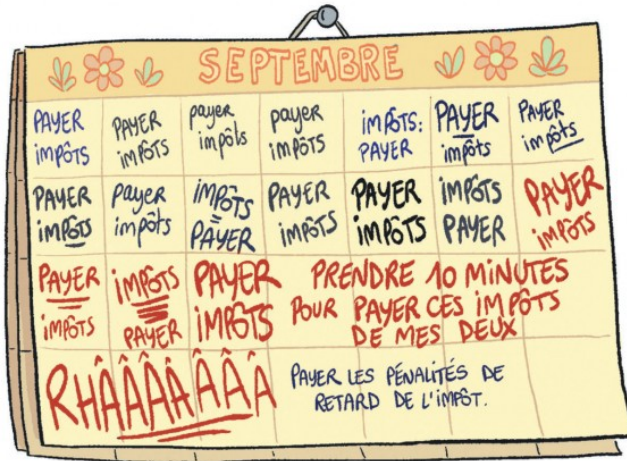 SEPTEMBRE
PAYER
impôts
PAYER
impôts
payer
impôts
payer
impôts
impôts:
PAYER
PAYER
impôts
PAYER
impôts
PAYER
impôts
payer
impôts
impôts
=
PAYER
PAYER
impôts
PAYER
impôts
impôts
PAYER
PAYER
impôts
PAYER
impôts
impôts
PAYER
PAYER
impôts
PRENDRE 10 MINUTES
POUR PAYER CES IMPÔTS
DE MES DEUX
RHÂÂÂÂÂÂÂ
PAYER LES PÉNALITÉS DE
RETARD DE L'IMPÔT.